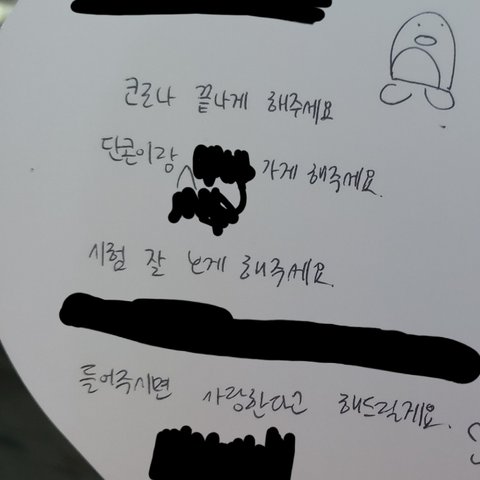 코로나 끝나게 해주세요
단콘이랑 가게 해주세요.
시험 잘 보게 해주세요.
들어주시면 사랑한다고 해드릴게요.